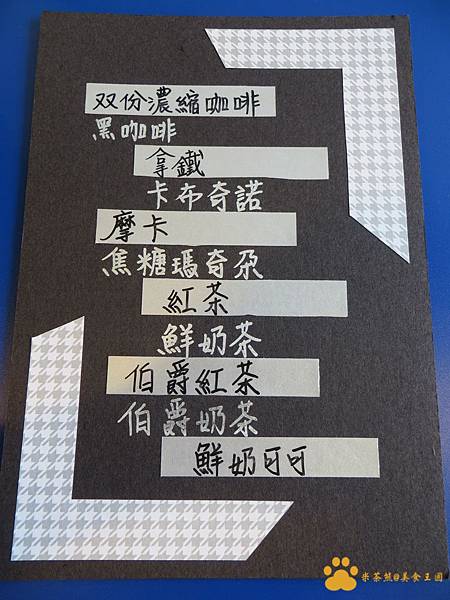 双份濃縮咖啡
黑咖啡
拿鐵
卡布奇諾
摩卡
焦糖瑪奇朵
紅茶
鮮奶茶
伯爵紅茶
伯爵奶茶
鮮奶可可
米茶熊@美食王國